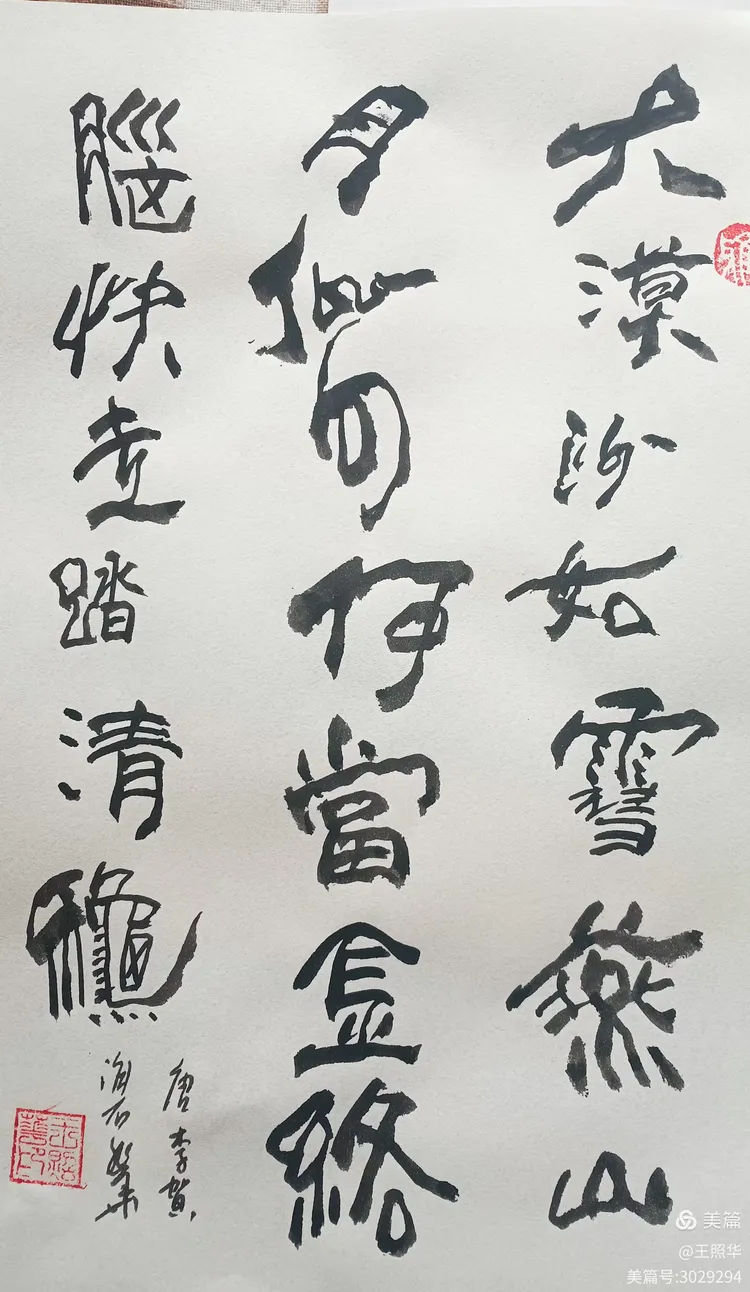 大漠沙如雪燕山
月似句何當金絡
腦快走踏清龝
唐李賀
王照華印
美篇
@王照华
美篇号:3029294